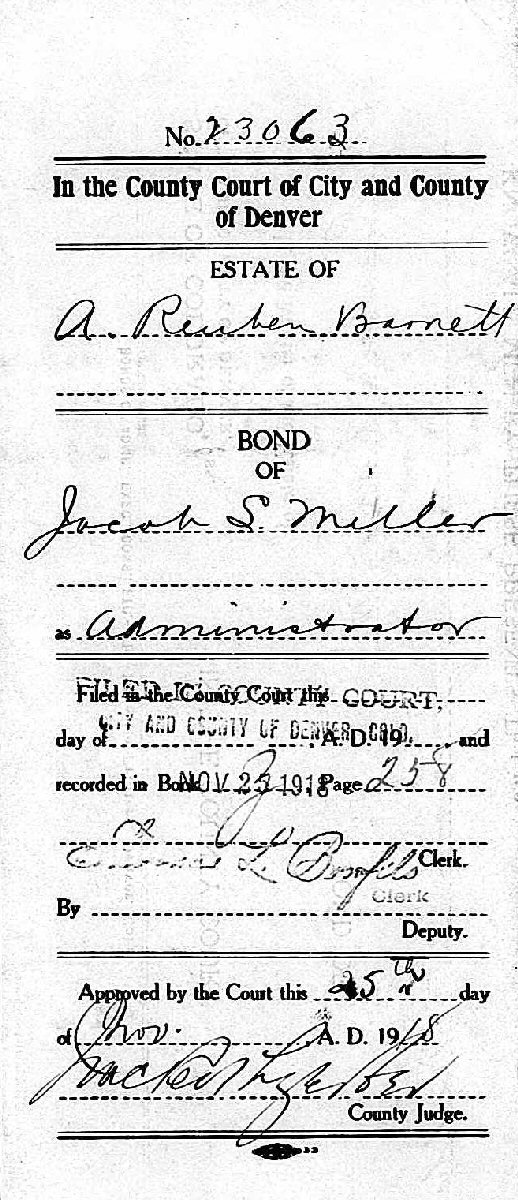 No. 23063
In the County Court of City and County
of Denver
ESTATE OF
A. Reuben Barnett
BOND
OF
Jacob S. Miller
as Administrator
Filed in the County Court this
FILED IN COUNTY COURT,
CITY AND COUNTY OF DENVER, COLO.
day of A. D. 19 and
recorded in Book Page 258
NOV 25 1918
L. Bonfils Clerk.
Clerk
By
Deputy.
Approved by the Court this 25th day
of Nov. A. D. 1918
County Judge.